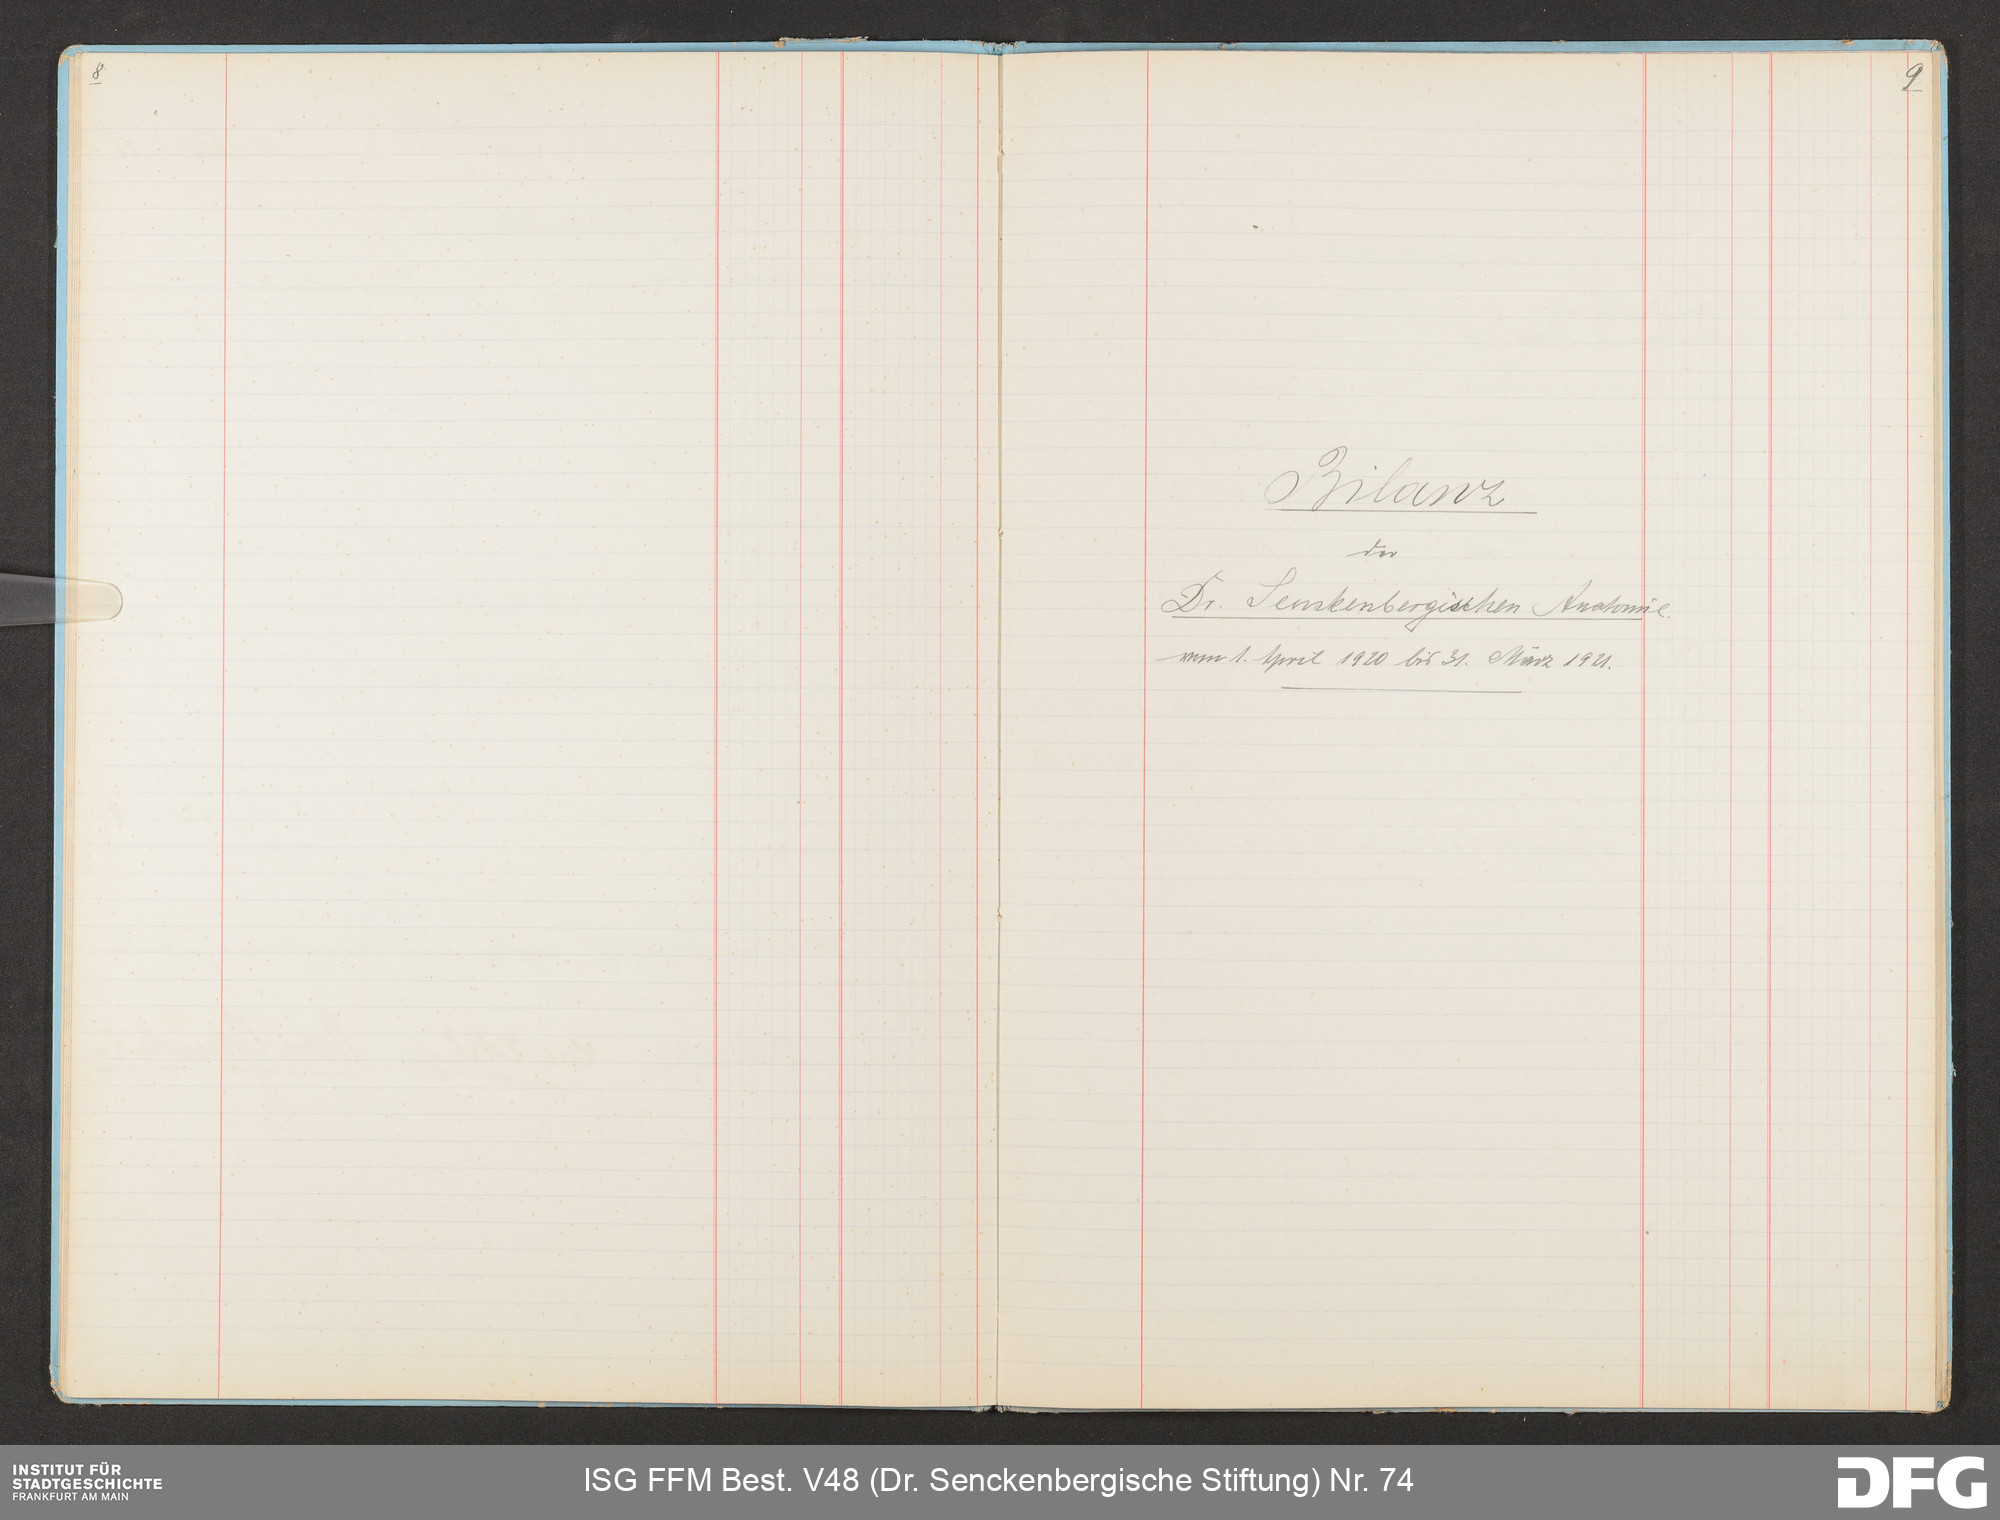 8
9
Bilanz
der
Dr. Senckenbergischen Anatomie.
vom 1. April 1920 bis 31. März 1921.
INSTITUT FÜR
STADTGESCHICHTE
FRANKFURT AM MAIN
ISG FFM Best. V48 (Dr. Senckenbergische Stiftung) Nr. 74
DFG